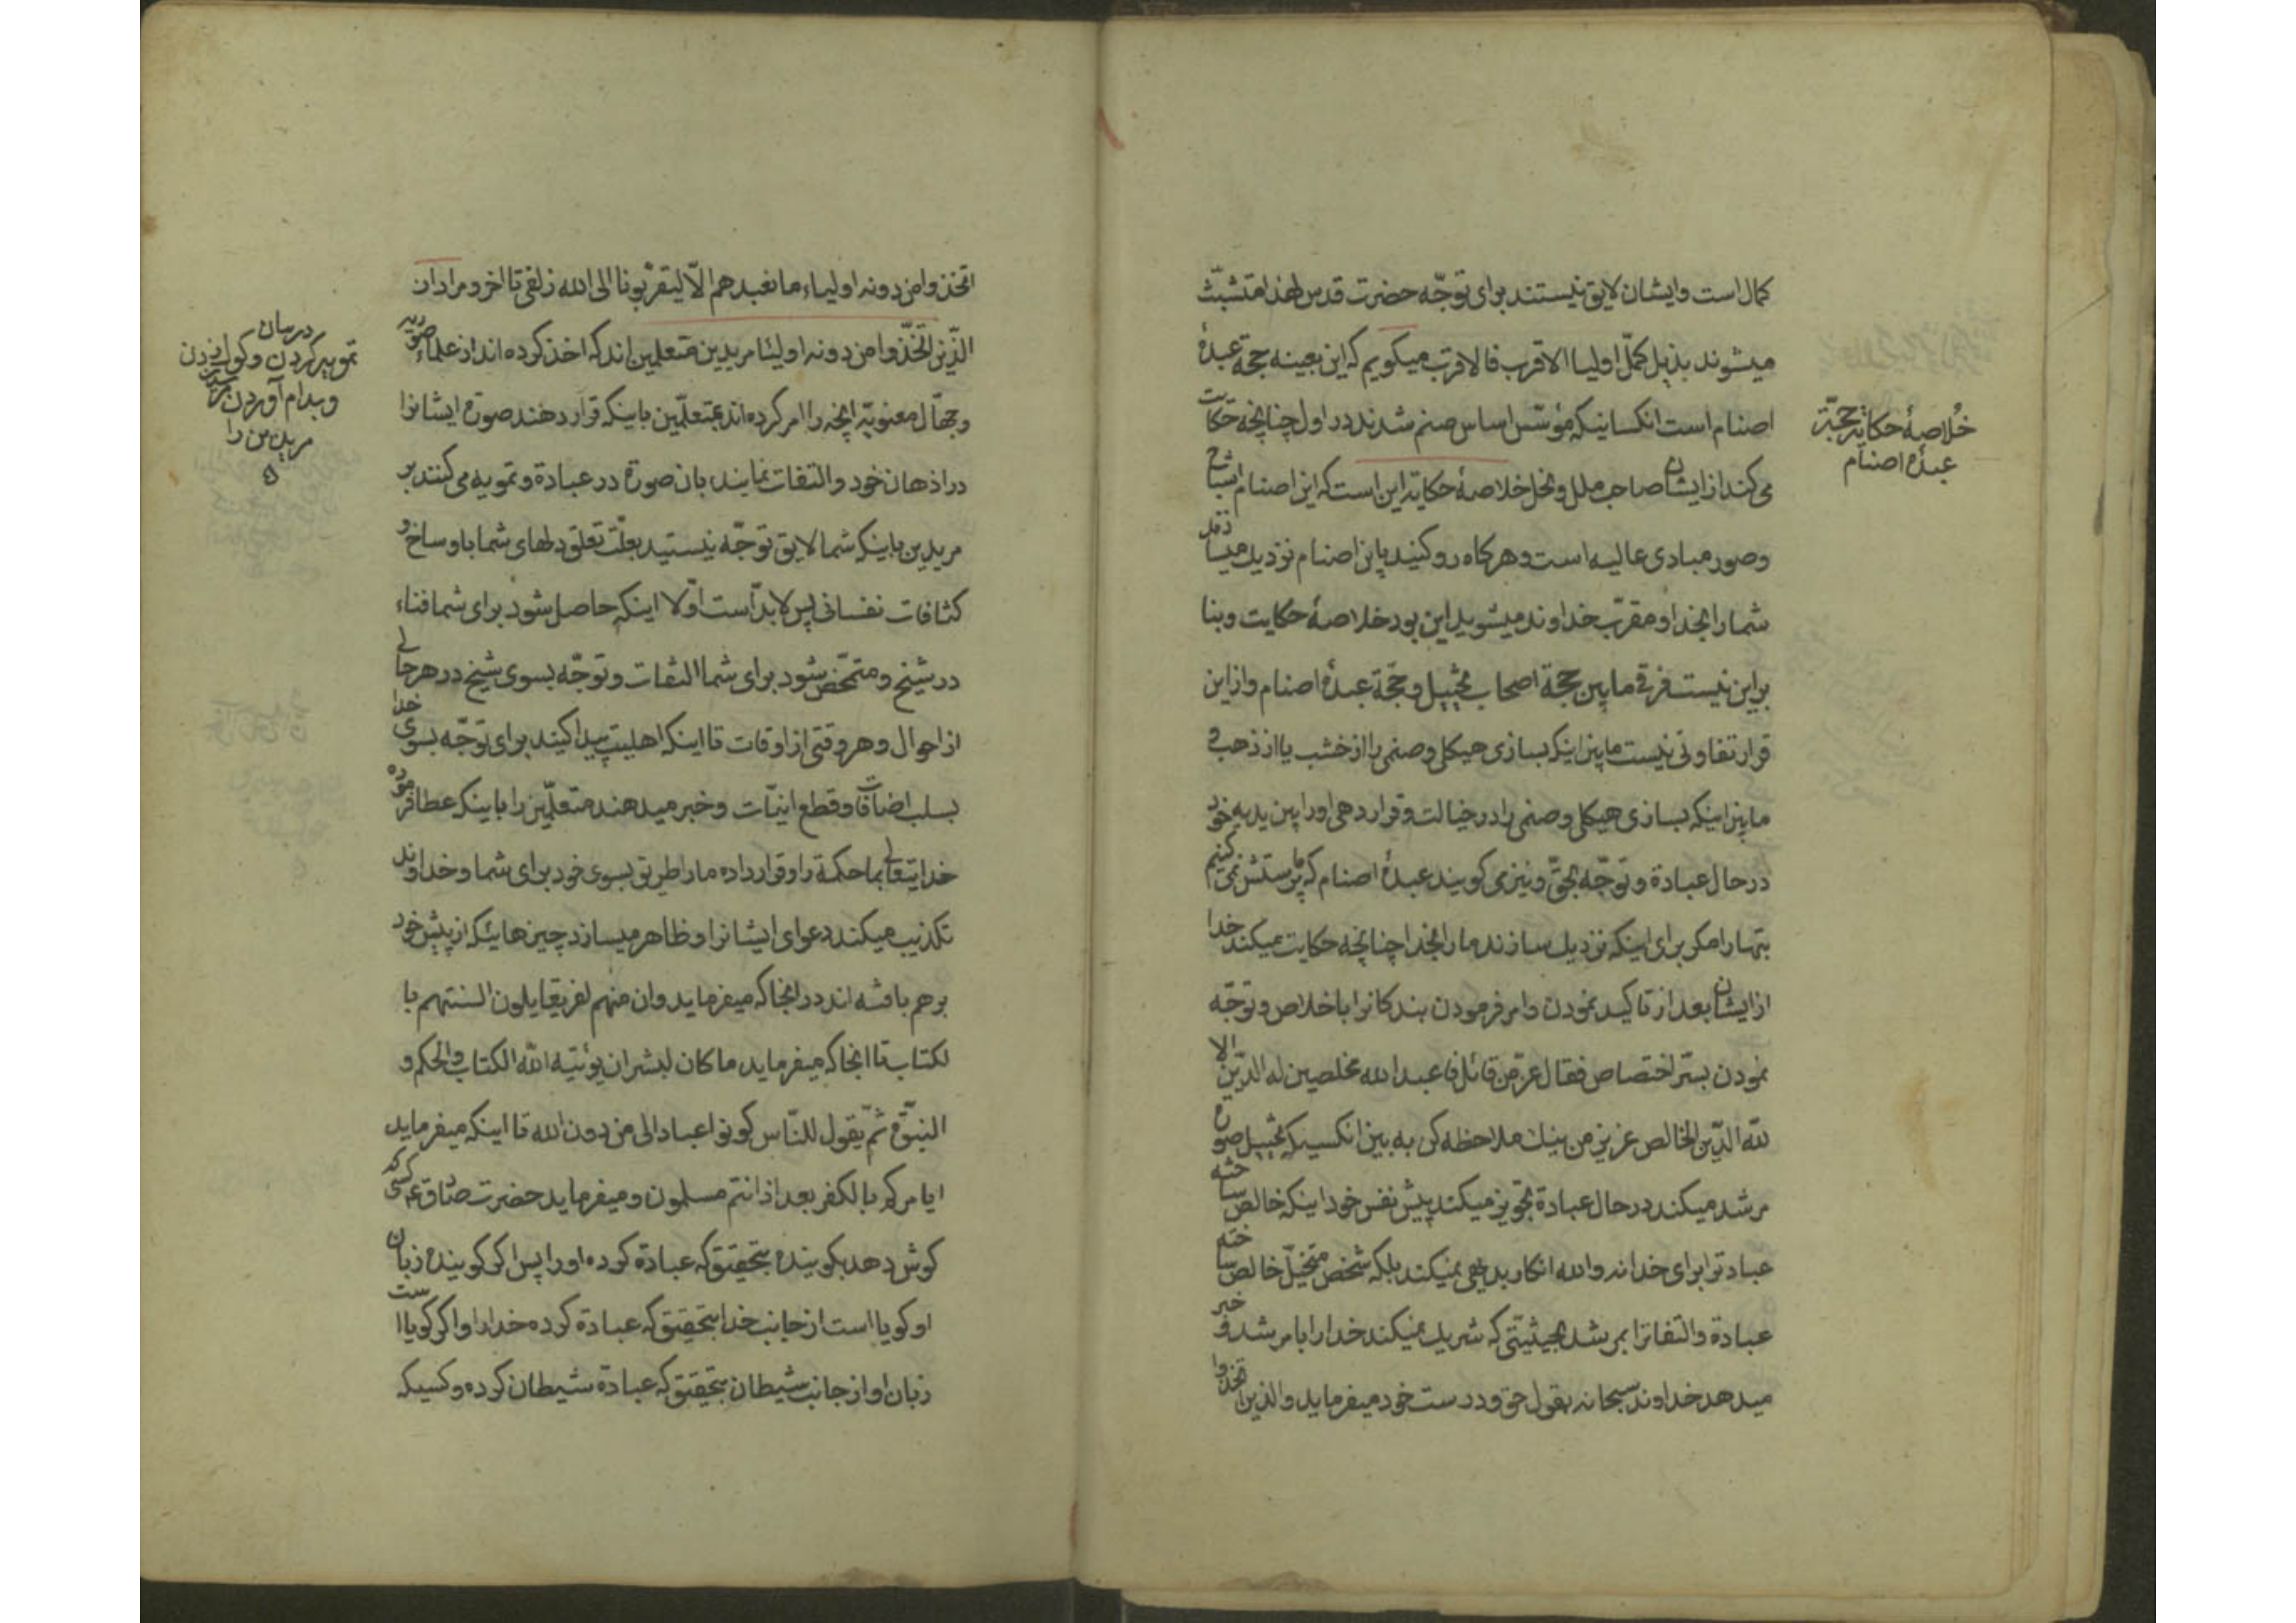 کمال است و ایشان لایق نیستند برای توجّه حضرت قدس لهذا متشبّث
میشوند بذیل کمّل اولیا الاقرب فالاقرب میکویم که این بعینه حجة عبدهٔ
اصنام است انکسانیکه مؤسّس اساس صنم شدند در اول چنانچه حکایت
می کند از ایشان صاحب ملل و نحل خلاصهٔ حکایة این است که این اصنام اشباح
و صور مبادی عالیه است و هر کاه رو کنید باین اصنام نزدیک میسازند
شما را بخدا و مقرّب خداوند میشوید این بود خلاصهٔ حکایت و بنا
براین نیست فرقی مابین حجة اصحاب تخییل و حجّة عبدهٔ اصنام و از این
قرار تفاوتی نیست مابین اینکه بسازی هیکلی و صنمی را از خشب یا از ذهب و
مابین اینکه بسازی هیکلی و صنمی را در خیالت و قرار دهی او را بین یدیه خود
در حال عبادة و توجّه بحقّ و نیز می کویند عبدهٔ اصنام که ما پرستش نمی کنیم
بتها را مکر برای اینکه نزدیک سازند ما را بخدا چنانچه حکایت میکند خدا
از ایشان بعد از تاکید نمودن و امر فرمودن بندکانرا باخلاص و توجّه
نمودن بستر اختصاص فقال عزّ من قائل فاعبد الله مخلصین له الدّین الا
للّه الدّین الخالص عزیز من نیک ملاحظه کن به بین انکسیکه تخییل صورة
مرشد میکند در حال عبادة تجویز میکند پیش نفس خود اینکه خالص ساخته
عبادترا برای خدا نه والله انکار بدیهی نمیکند بلکه شخص متخیّل خالص ساخته
عبادة و التفاترا بمرشد بحیثیّتی که شریک نمیکند خدا را با مرشد و خبر
میدهد خداوند سبحانه بقول حق و درست خود میفرماید والذین اتخذوا
خُلاصهٔ حکایة حجّة
عبدهٔ اصنام
اتخذوا من دونه اولیاء ما نعبدهم الّا لیقرّبونا الی الله زلفی تا اخر و مراد از
الّذین اتخذّوا من دونه اولیاء مریدین متعلمین اند که اخذ کرده اند از علماء صوریه
و جهّال معنویّه انچه را امر کرده اند بمتعلّمین باینکه قرار دهند صورة ایشانرا
در اذهان خود و التفات نمایند بان صورة در عبادة و تمویه می کنند بر
مریدین باینکه شما لایق توجّه نیستید بعلّت تعلق دلهای شما باوساخ و
کثافات نفسانی پس لابدّ است اوّلا اینکه حاصل شود برای شما فناء
در شیخ و متمحّض شود برای شما التفات و توجّه بسوی شیخ در هر حالی
از احوال و هر وقتی از اوقات تا اینکه اهلیت پیدا کنید برای توجّه بسوی خدا
بسلب اضافات و قطع انیّات و خبر میدهند متعلّمین را باینکه عطا فرموده
خدایتعالی بما حکمة را و قرار داده ما را طریق بسوی خود برای شما و خداوند
تکذیب میکند دعوای ایشانرا و ظاهر میسازد چیزهائیکه از پیش خود
بر هم بافته اند در انجا که میفرماید و ان منهم لفریقا یلون السنتهم با
لکتاب تا انجا که میفرماید ما کان لبشر ان یوتیه الله الکتاب والحکم و
النبّوّة ثمّ یقول للنّاس کونوا عبادا لی من دون الله تا اینکه میفرماید
ایامرکم بالکفر بعد اذ انتم مسلمون و میفرماید حضرت صادق ع کسی که
کوش دهد بکوینده بتحقیق که عبادة کرده او را پس اکر کوینده زبان
او کویا است از جانب خدا بتحقیق که عبادة کرده خدا را و اکر کویا است
زبان او از جانب شیطان بتحقیق که عبادة شیطان کرده و کسیکه
در بیان
تمویه کردن و کول زدن
و بدام آوردن
مریدین را